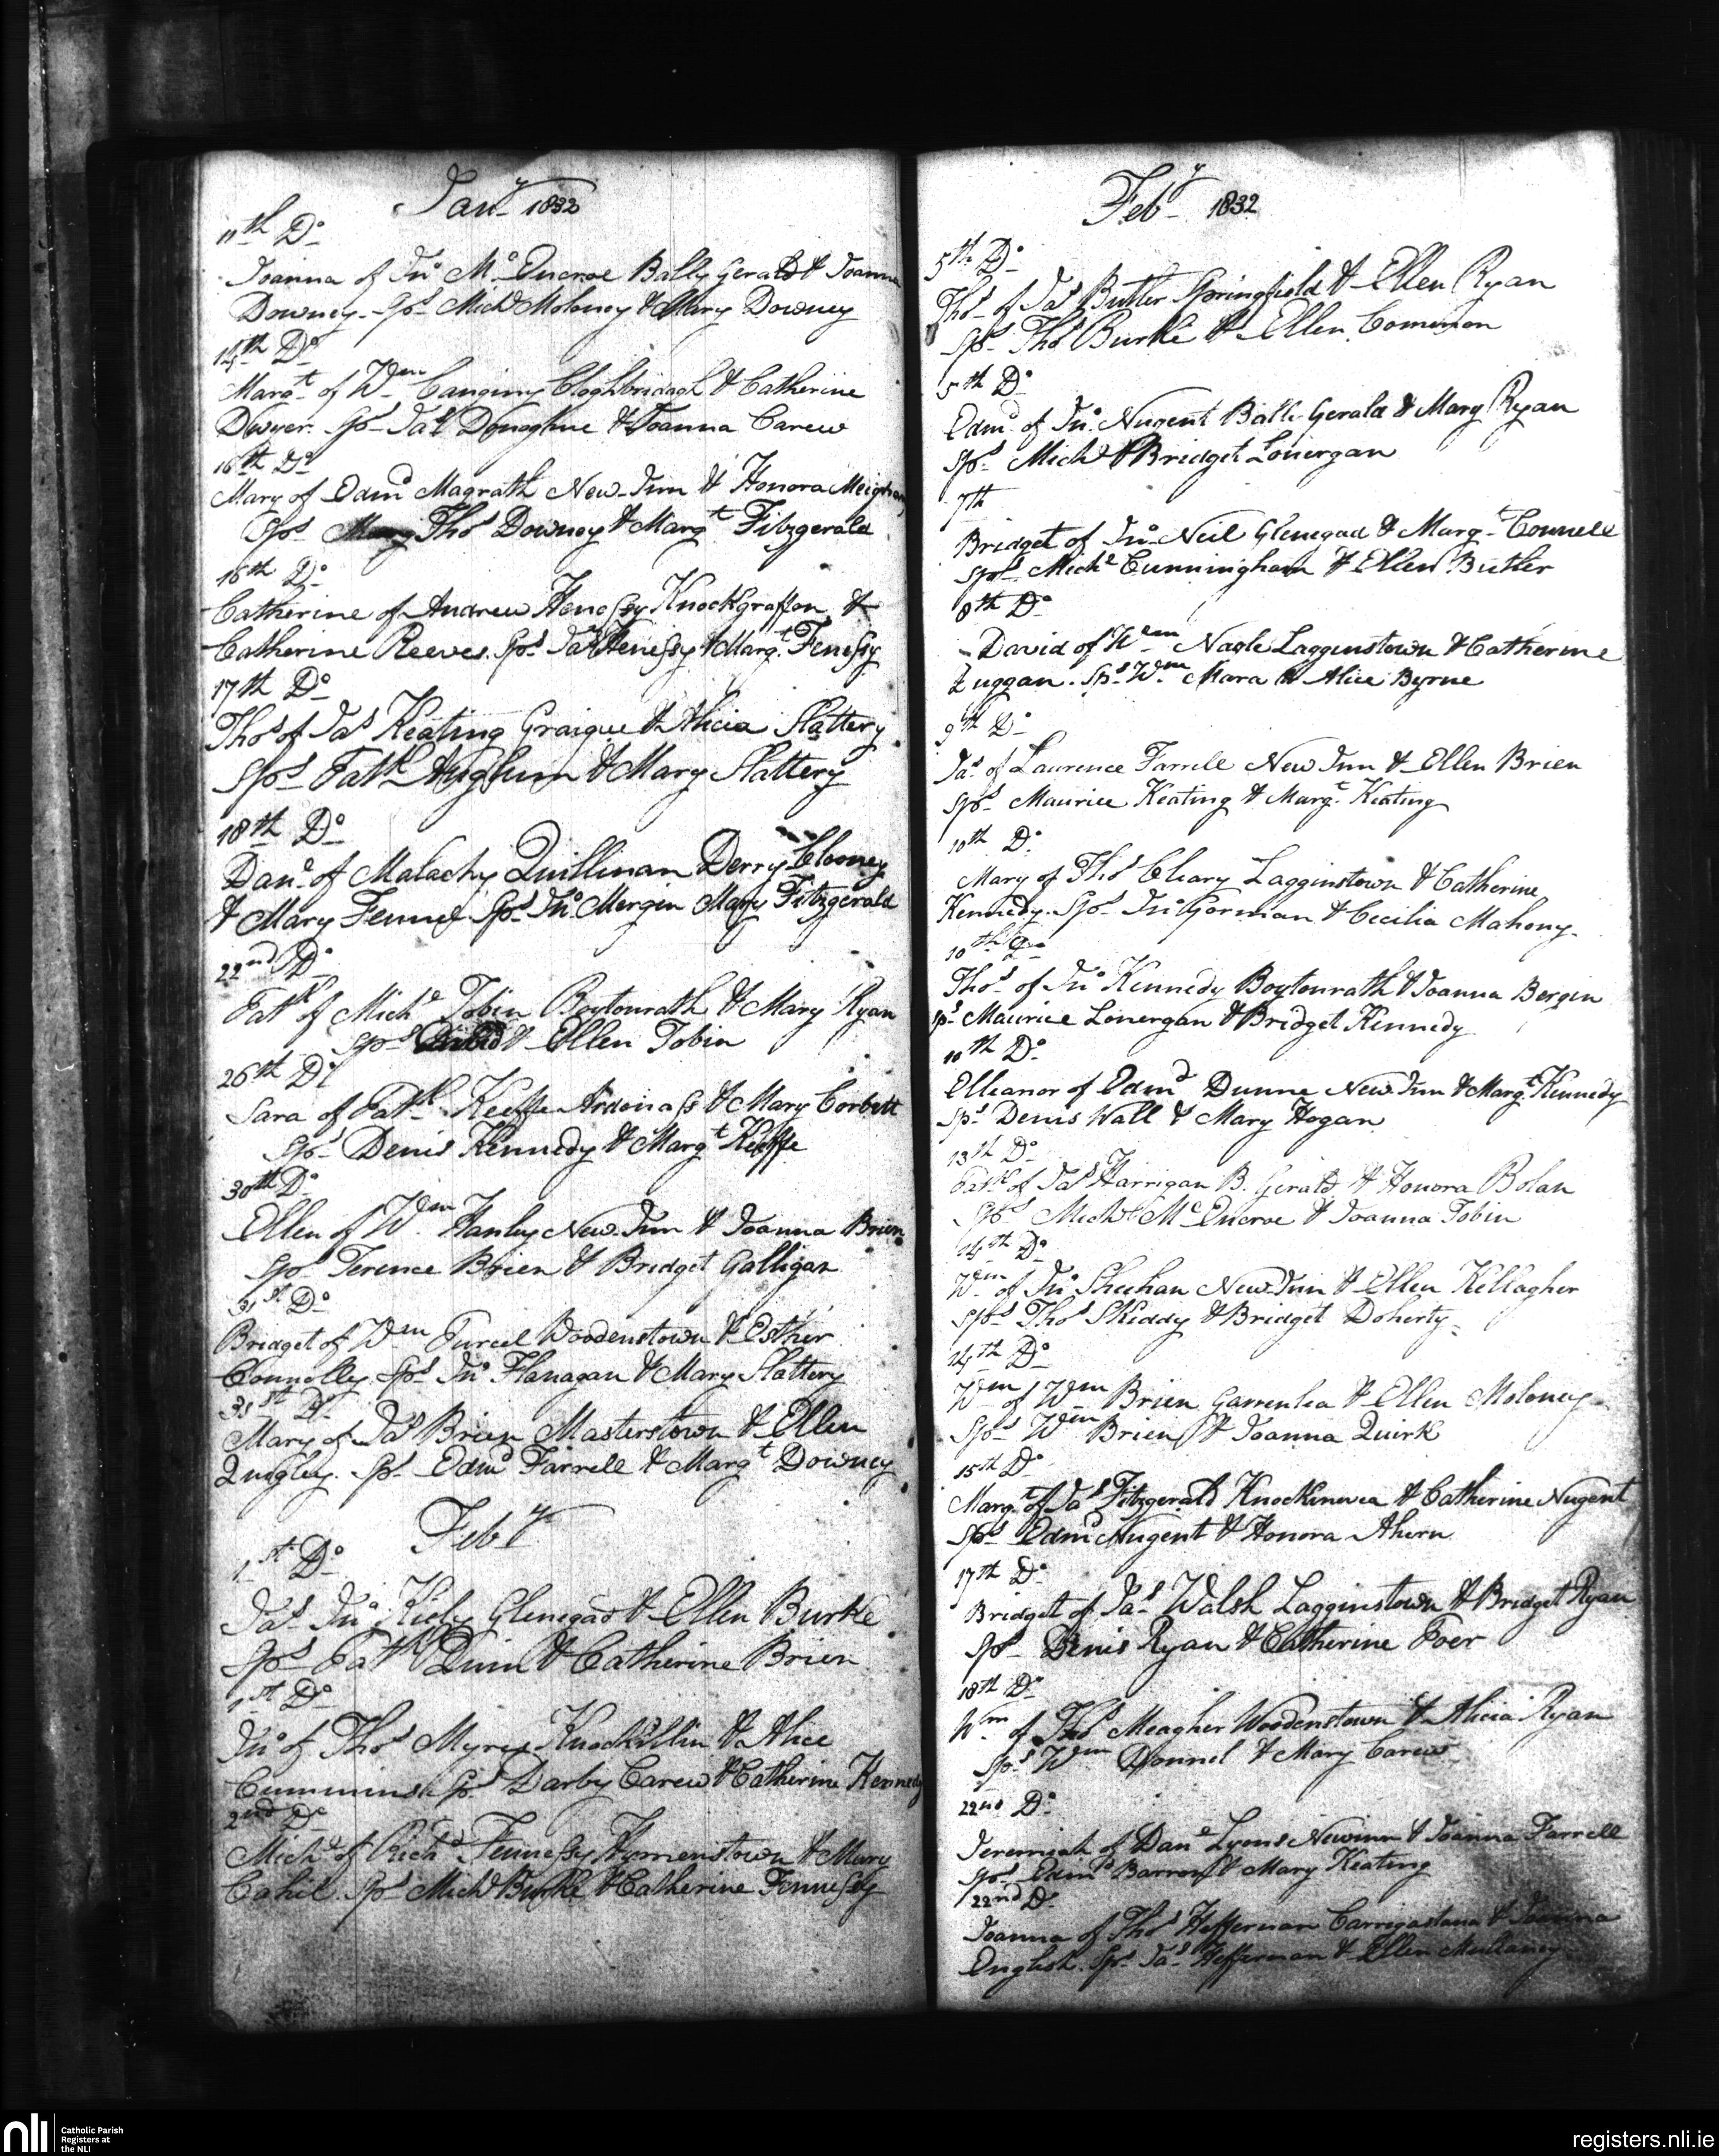 Jany 1832
11th Do
Joanna of Jno McEncroe Bally Gerald & Joanna
Downey. Sps Michl Moloney & Mary Downey
14th Do
Margt of Wm Cloghbridagh & Catherine
Dwyer. Sps Jas Donoghue & Joanna Carew
16th Do
Mary of Edmd Magrath New-Inn & Honora Meighan
Sps Thos Downey & Margt Fitzgerald
16th Do
Catherine of Andrew Henessy Knockgraffon &
Catherine Reeves. Sps Jas Henessy & Margt Fenessy
17th Do
Thos of Jas Keating Graigue & Alicia Slattery
Sps Patk & Mary Slattery
18th Do
Danl of Malachy Quillinan Derry Clooney
& Mary Fennel Sps Jno Mergin Mary Fitzgerald
22nd Do
Patk of Michl Tobin Boytonrath & Mary Ryan
Sps & Ellen Tobin
26th Do
Sara of Patk Keeffe Ardonass & Mary Corbett
Sps Denis Kennedy & Margt Keeffe
30th Do
Ellen of Wm Hanley New-Inn & Joanna Brien
Sps Terence Brien & Bridget Galligan
31st Do
Bridget of Wm Purcel Woodenstown & Esther
Connolly. Sps Jno Flanagan & Mary Slattery
31st Do
Mary of Jas Brien Masterstown & Ellen
Quigley. Sps Edmd Farrell & Margt Downey
Feby
1st Do
Jas Jno Kiely Glenegad & Ellen Burke
Sps Patk Quin & Catherine Brien
1st Do
Jno of Thos Myres Knockillin & Alice
Cummins. Sps Darby Carew & Catherine Kennedy
2nd Do
Michl of Richd Fennessy & Mary
Cahil. Sps Michl Burke & Catherine Fennessy
Feby 1832
5th Do
Thos of Jas Butler Springfield & Ellen Ryan
Sps Thos Burke & Ellen Comemon
5th Do
Edmd of Jno Nugent Balli Gerald & Mary Ryan
Sps Michl & Bridget Lonergan
7th
Bridget of Jno Neil Glenegad & Margt Connell
Sps Michl Cunningham & Ellen Butler
8th Do
David of Wm Nagle Lagginstown & Catherine
Luggan. Sps Wm Mara & Alice Byrne
9th Do
Jas of Laurence Farrell New Inn & Ellen Brien
Sps Maurice Keating & Margt Keating
10th Do
Mary of Thos Cleary Lagginstown & Catherine
Kennedy. Sps Jno Gorman & Cecilia Mahony.
10th Do
Thos of Jno Kennedy Boytonrath & Joanna Bergin
Sps Maurice Lonergan & Bridget Kennedy
10th Do
Elleanor of Edmd Dunne New Inn & Margt Kennedy
Sps Denis Wall & Mary Hogan
13th Do
Patk of Jas Harrigan B. Gerald & Honora Bolan
Sps Michl McEncroe & Joanna Tobin
14th Do
Wm of Jno Sheehan New-Inn & Ellen Kellagher
Sps Thos Skiddy & Bridget Doherty
14th Do
Wm of Wm Brien Garrenlea & Ellen Moloney
Sps Wm Brien & Joanna Quirk
15th Do
Margt of Jas Fitzgerald Knockinura & Catherine Nugent
Sps Edmd Nugent & Honora Ahern
17th Do
Bridget of Jas Walsh Lagginstown & Bridget Ryan
Sps Denis Ryan & Catherine Poer
18th Do
Wm of Thos Meagher Woodenstown & Alicia Ryan
Sps Wm Donnel & Mary Carew
22nd Do
Jeremiah of Danl Lyons Newinn & Joanna Farrell
Sps Edmd Barron & Mary Keating
22nd Do
Joanna of Thos Heffernan Carrigastana & Joanna
English. Sps Jas Heffernan & Ellen Mullaney
nli
Catholic Parish
Registers at
the NLI
registers.nli.ie